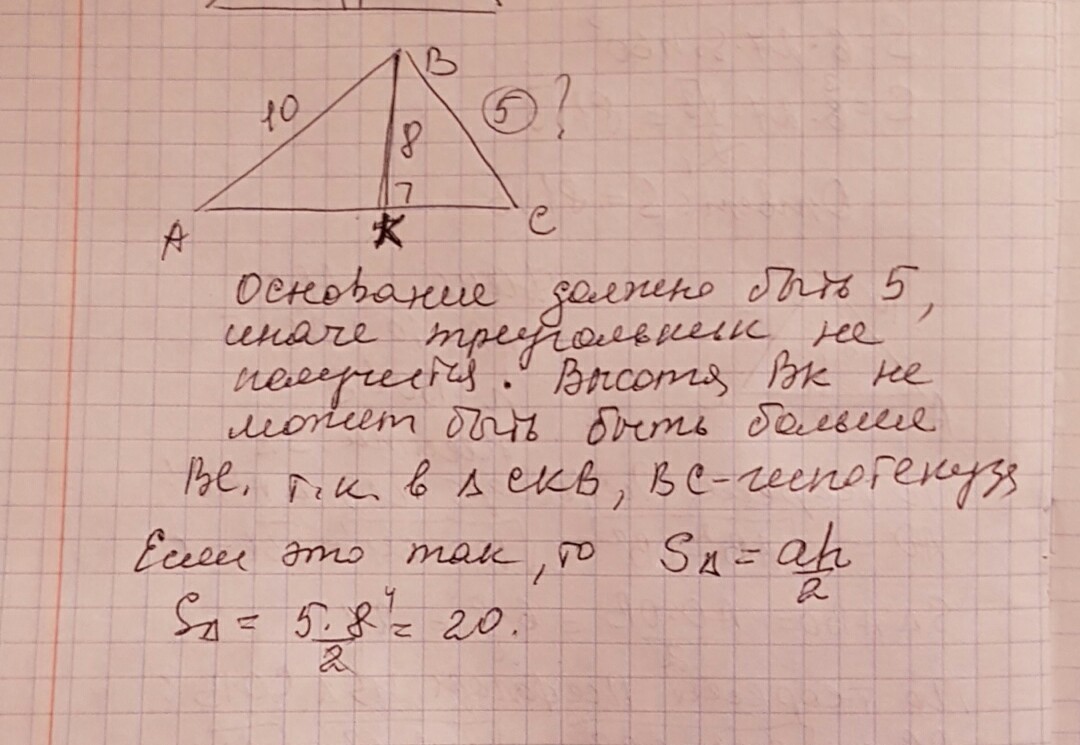 B
10
5 ?
8
A
K
C
Основание должно быть 5,
иначе треугольник не
получется. Высота BK не
может быть быть больше
BC, т.к. в Δ CKB, BC - гипотенуза
Если это так, то SΔ = ah/2
SΔ = 5·8⁴/2 = 20.